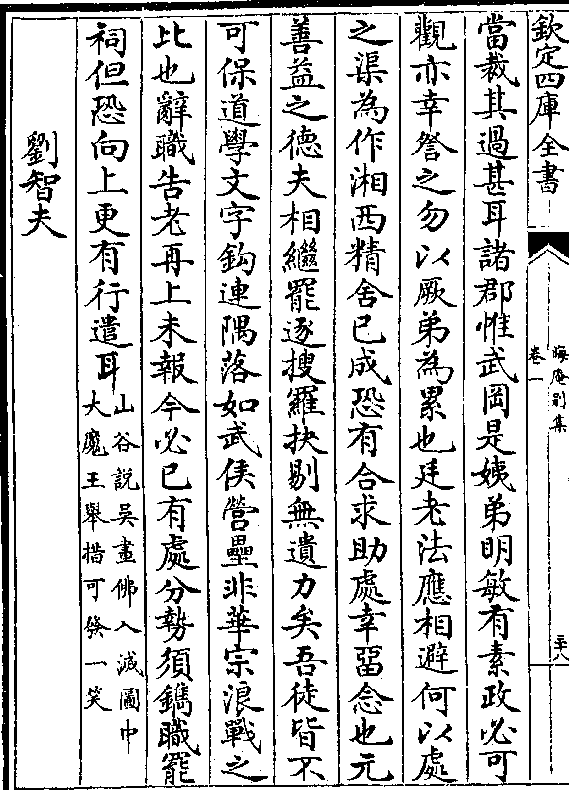 欽定四庫全書
晦庵別集
卷一
三十八
當裁其過甚耳諸郡惟武岡是姨弟明敏有素政必可
觀亦幸詧之勿以厥弟為累也廷老法應相避何以處
之渠為作湘西精舍已成恐有合求助處幸留念也元
善益之德夫相繼罷逐搜羅抉剔無遺力矣吾徒皆不
可保道學文字鈎連隅落如武侯營壘非華宗浪戰之
比也辭職告老再上未報今必已有處分勢須鐫職罷
祠但恐向上更有行遣耳山谷說吳畫佛入滅圖中
大魔王舉措可發一笑
劉智夫